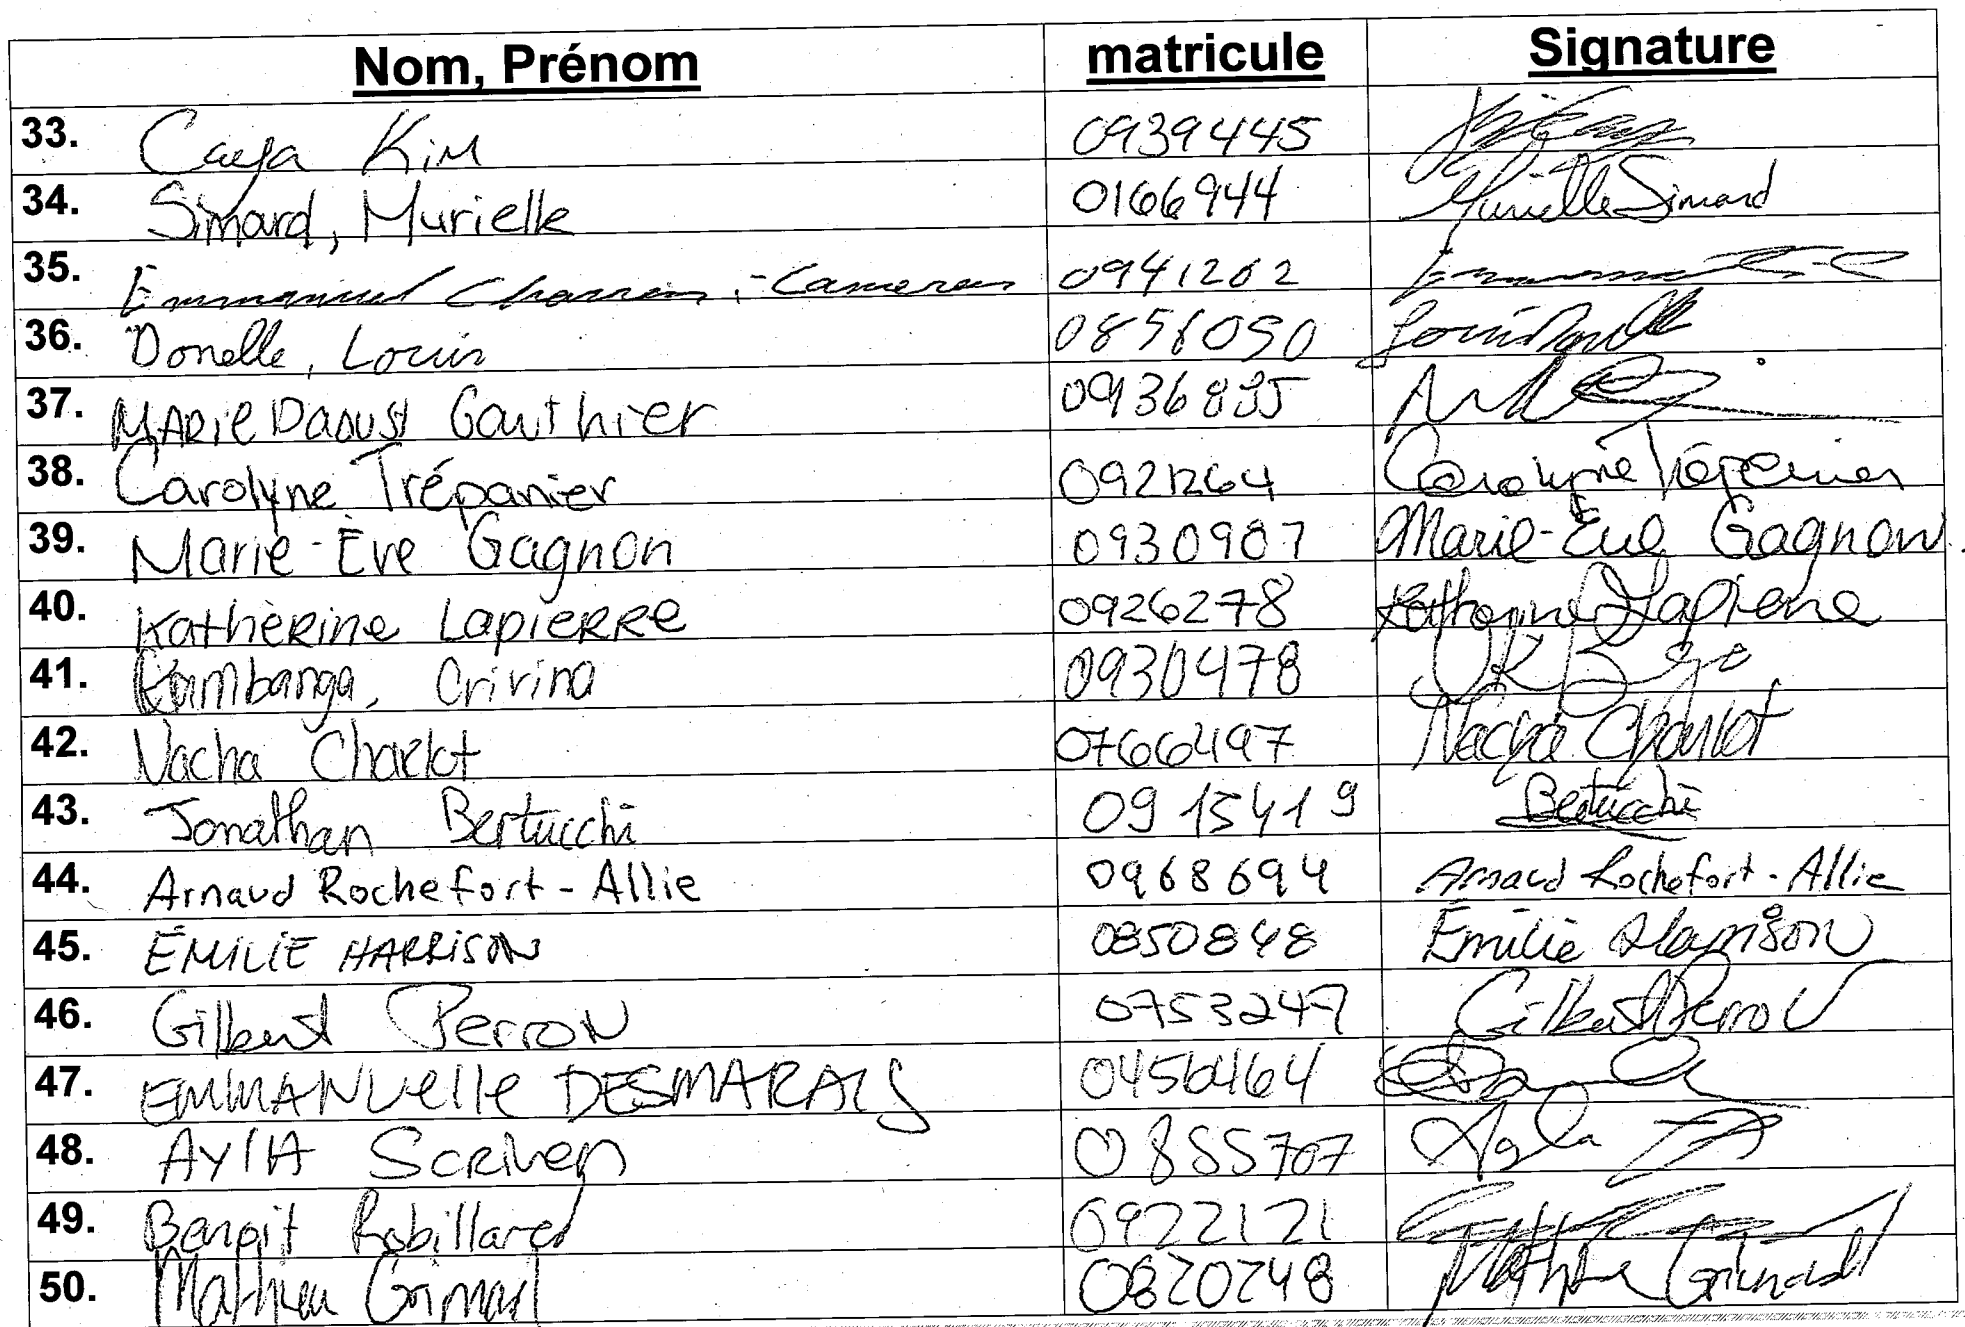 Nom, Prénom matricule Signature
33. Caya Kim 0939445
34. Simard, Murielle 0166944 Murielle Simard
35. Emmanuel 0941202
36. Donelle, Louis
37. Marie Daoust Gauthier
38. Carolyne Trépanier 0921264 Carolyne Trépanier
39. Marie-Ève Gagnon 0930987 Marie-Eve Gagnon
40. Kathèrine Lapierre 0926278 Katherine Lapierre
41. 0930478
42. Nacha Charlot 0766497 Nacha Charlot
43. Jonathan Bertucchi 0915419 Bertucchi
44. Arnaud Rochefort-Allie 0968694 Arnaud Rochefort-Allie
45. ÉMILIE HARRISON 0850848 Émilie Harrison
46. Gilbert Perron 0753247 Gilbert Perron
47. EMMANUElle DESMARAIS
48. AylA Scriven 0855707
49. Benoit Robillard 0922121
50. Mathieu Grimard 0820248 Mathieu Grimard